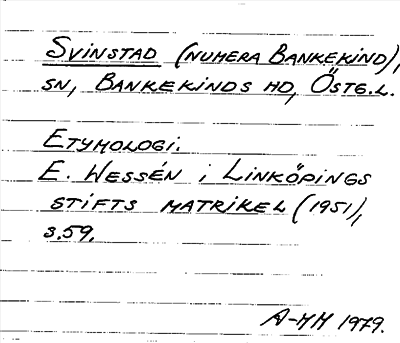 SVINSTAD (NUMERA BANKEKIND),
SN, BANKEKINDS HD, ÖSTG.L.
ETYMOLOGI.
E. WESSÉN i LINKÖPINGS
STIFTS MATRIKEL (1951),
S.59.
A-MH 1979.